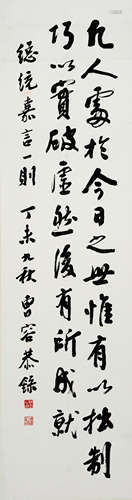 凡人處於今日之世惟有以拙制
巧以實破虛然後有所成就
總統嘉言一則 丁未九秋 曹容恭錄